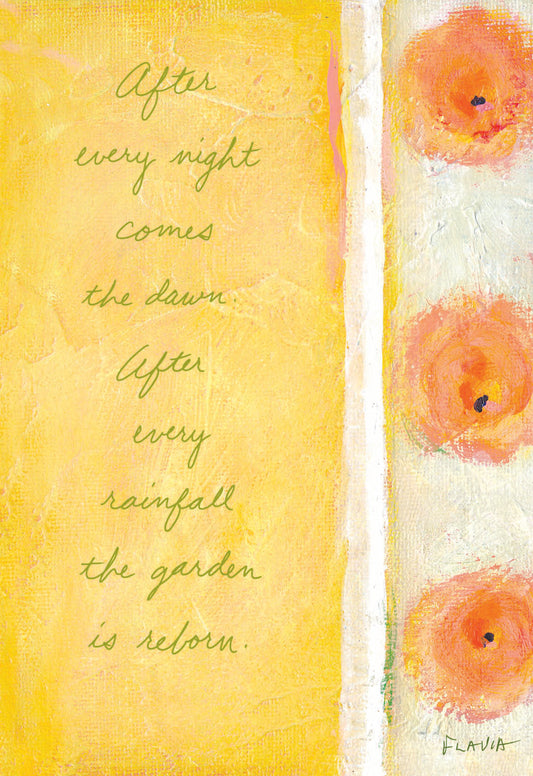 After
every night
comes
the dawn.
After
every
rainfall
the garden
is reborn.
FLAVIA